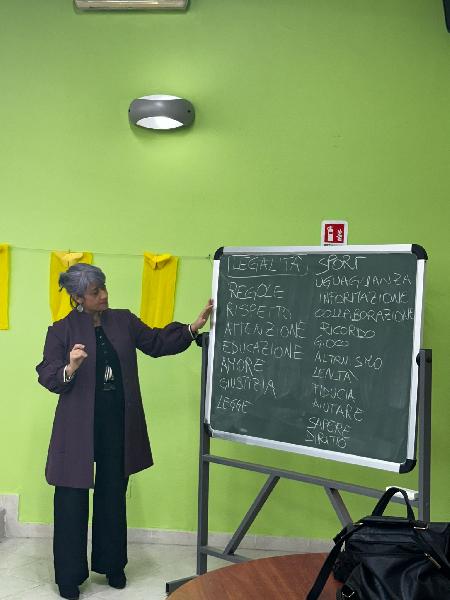 LEGALITÀ
REGOLE
RISPETTO
ATTENZIONE
EDUCAZIONE
AMORE
GIUSTIZIA
LEGGE
SPORT
UGUAGLIANZA
INFORMAZIONE
COLLABORAZIONE
RICORDO
GIOCO
ALTRUISMO
LEALTÀ
FIDUCIA
AIUTARE
SAPERE
DIRITTO